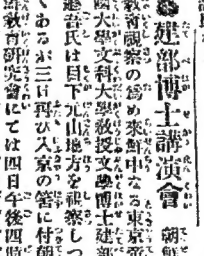 建部博士講演會 朝鮮
教育視察の爲め來鮮中なる東京帝
國大學文科大學敎授文學博士建部
遯吾氏は目下元山地方を視察しつ
くあるが三日再び入京の筈に付朝
鮮敎育硏究會にては四日午後四時